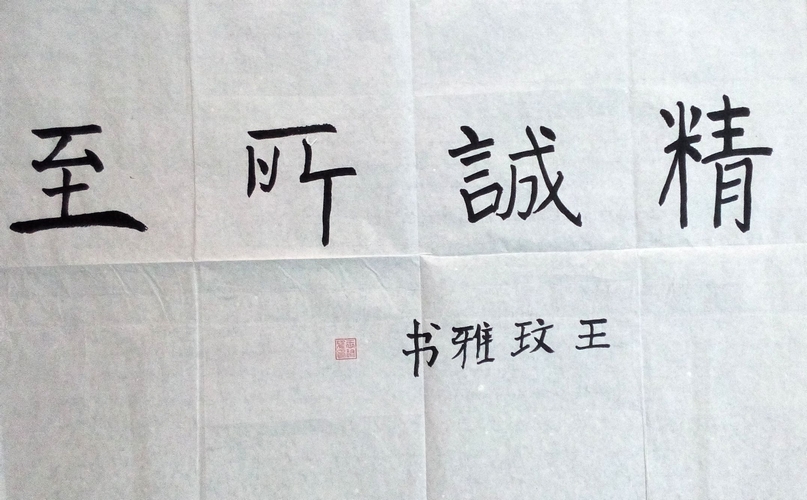 精誠所至
王玟雅书